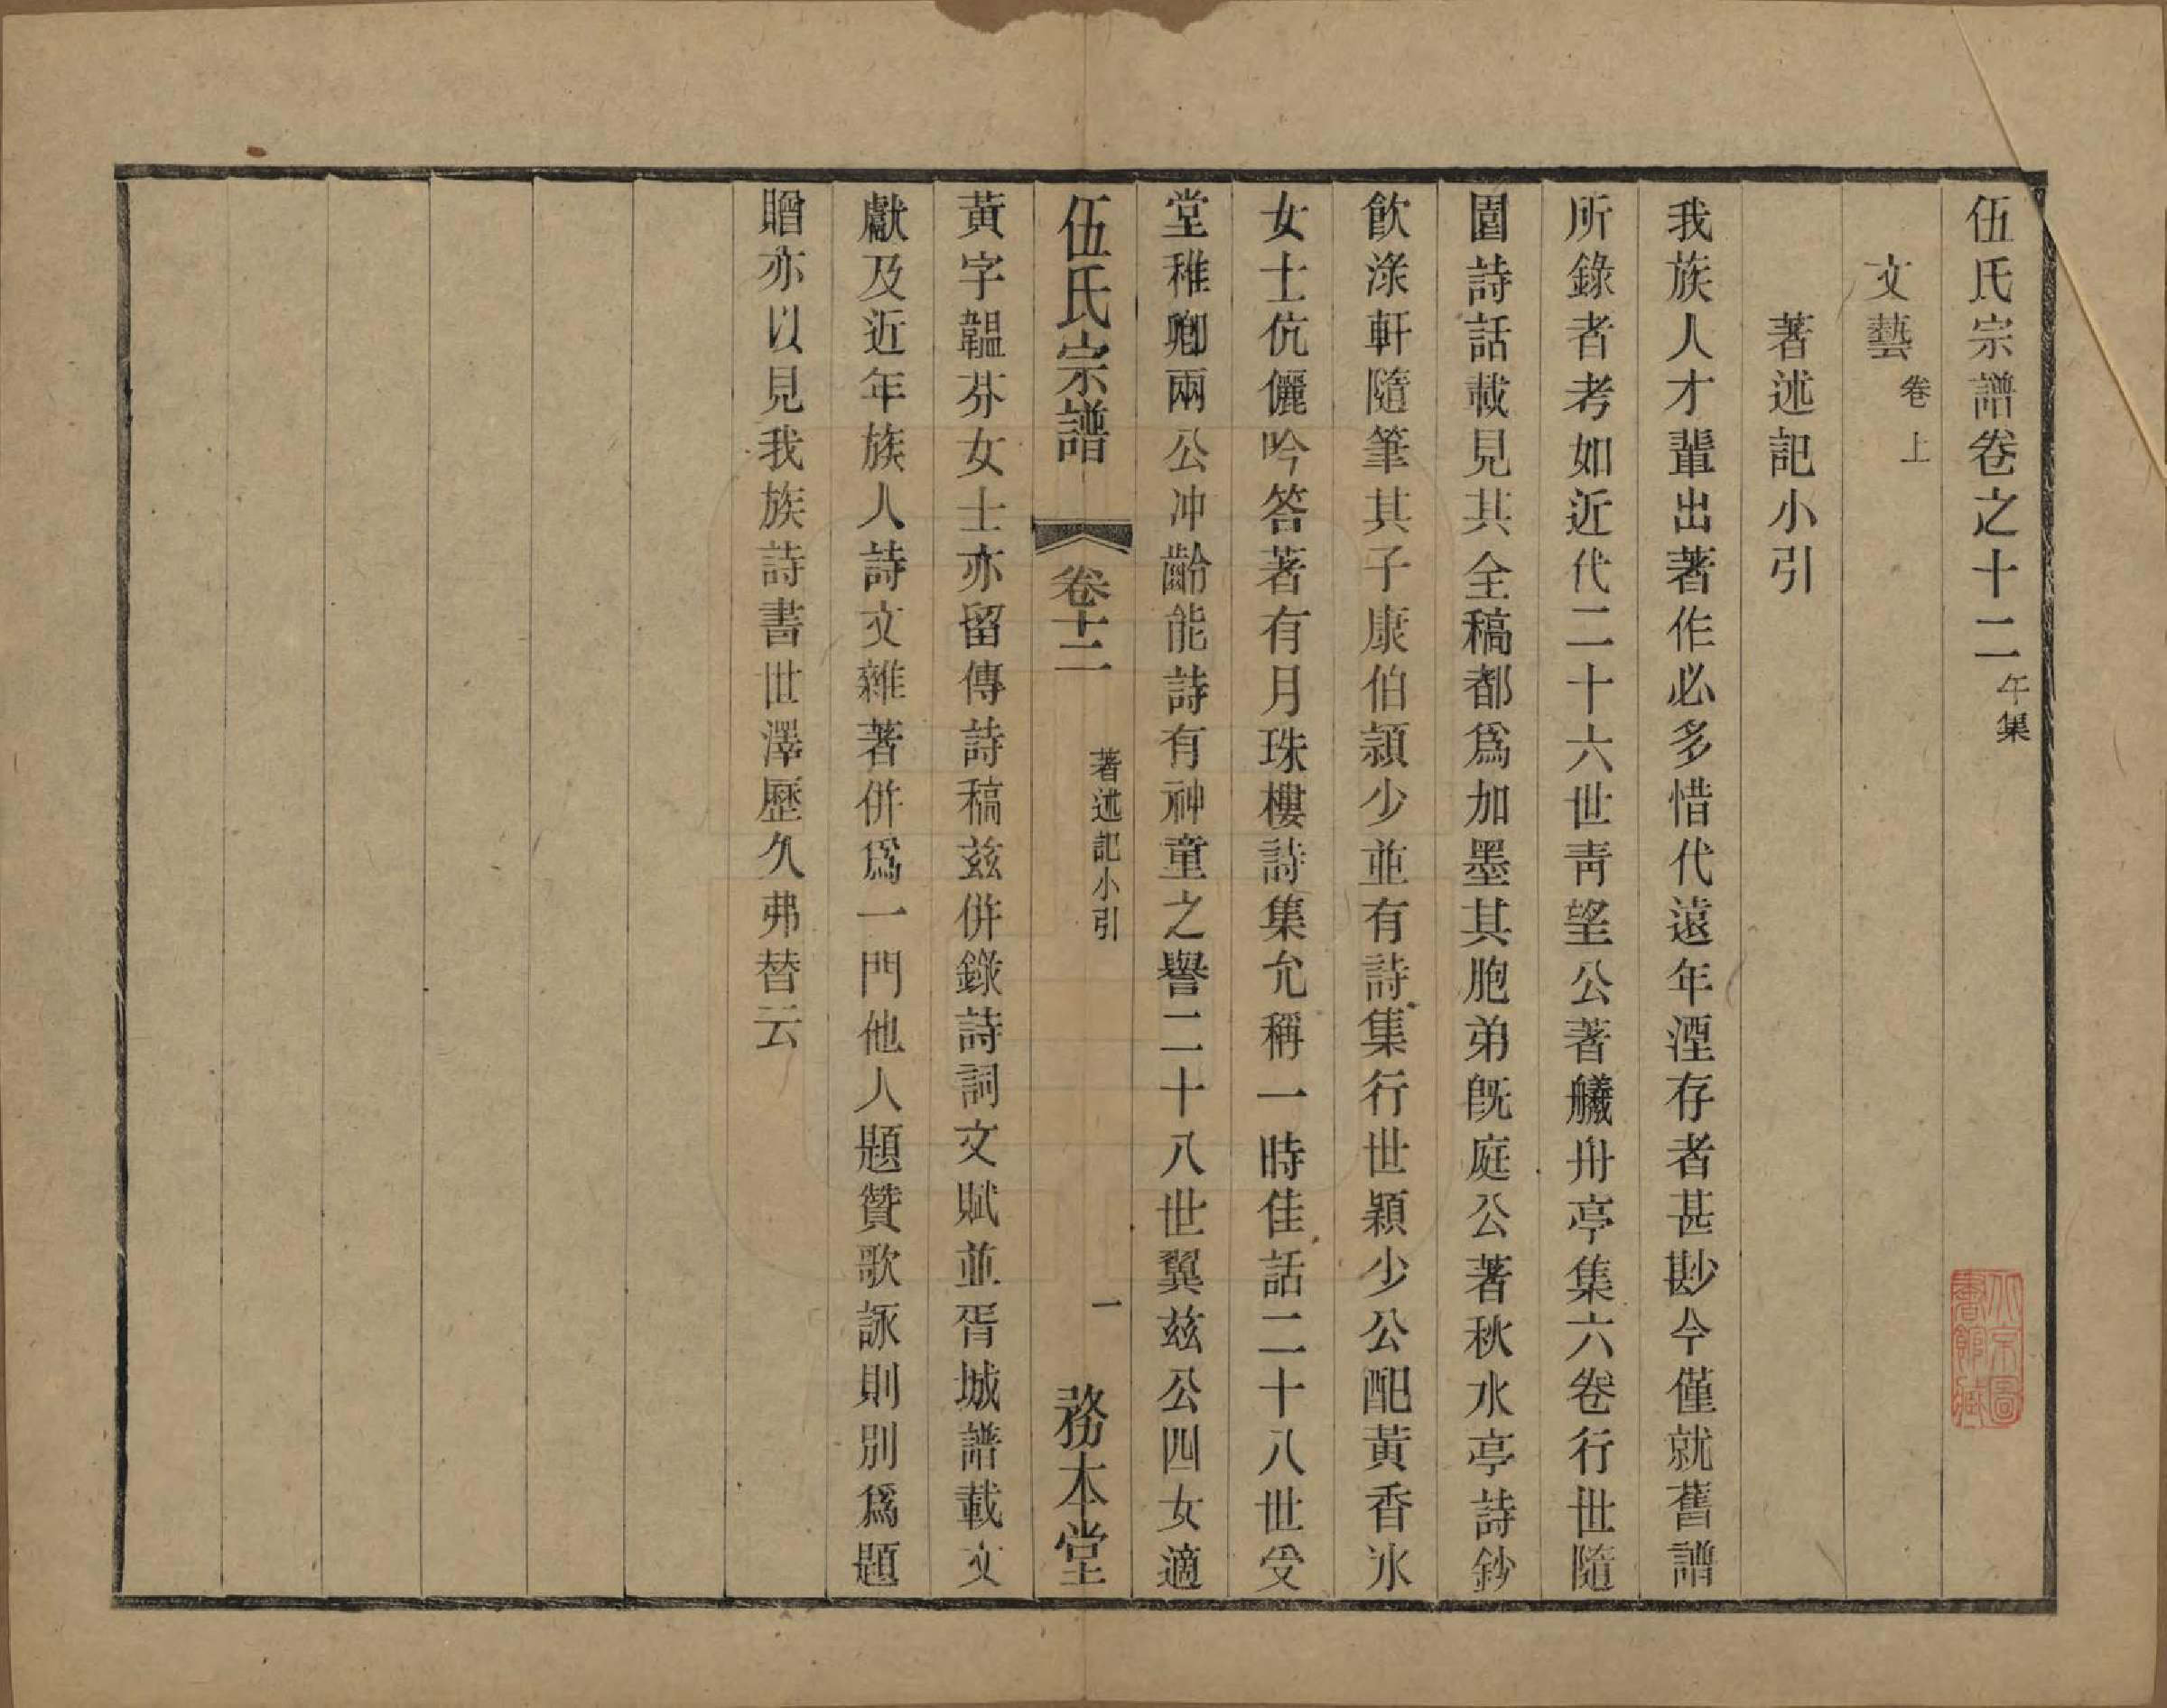 伍氏宗譜卷之十二午集
文藝卷上
著述記小引
我族人才輩出著作必多惜代遠年湮存者甚尠今僅就舊譜
所錄者考如近代二十六世靑望公著艤舟亭集六卷行世隨
園詩話載見其全稿都爲加墨其胞弟旣庭公著秋水亭詩鈔
飮淥軒隨筆其子康伯潁少並有詩集行世穎少公配黃香冰
女士伉儷吟答著有月珠樓詩集允稱一時佳話二十八世受
堂稚卿兩公冲齡能詩有神童之譽二十八世翼茲公四女適
伍氏宗譜
卷十二
著述記小引
一
務本堂
黃字韞芬女士亦留傳詩稿茲併錄詩詞文賦並胥城譜載文
獻及近年族人詩文雜著併爲一門他人題贊歌詠則別爲題
贈亦以見我族詩書世澤歷久弗替云
北京圖
書館藏